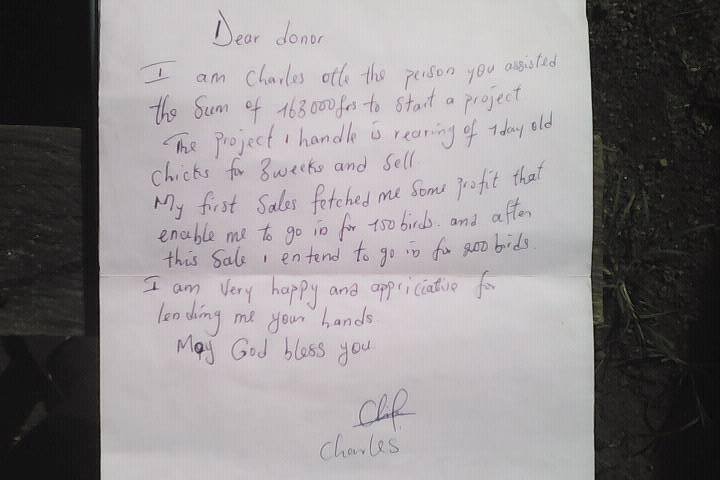 Dear donor
I am Charles otle the person you assisted
the sum of 163000frs to start a project
The project i handle is rearing of 1day old
chicks for 3weeks and sell.
My first sales fetched me some profit that
enable me to go in for 150 birds. and after
this sale i entend to go in for 200 birds.
I am very happy and appriciative for
lending me your hands.
May God bless you.
Charles